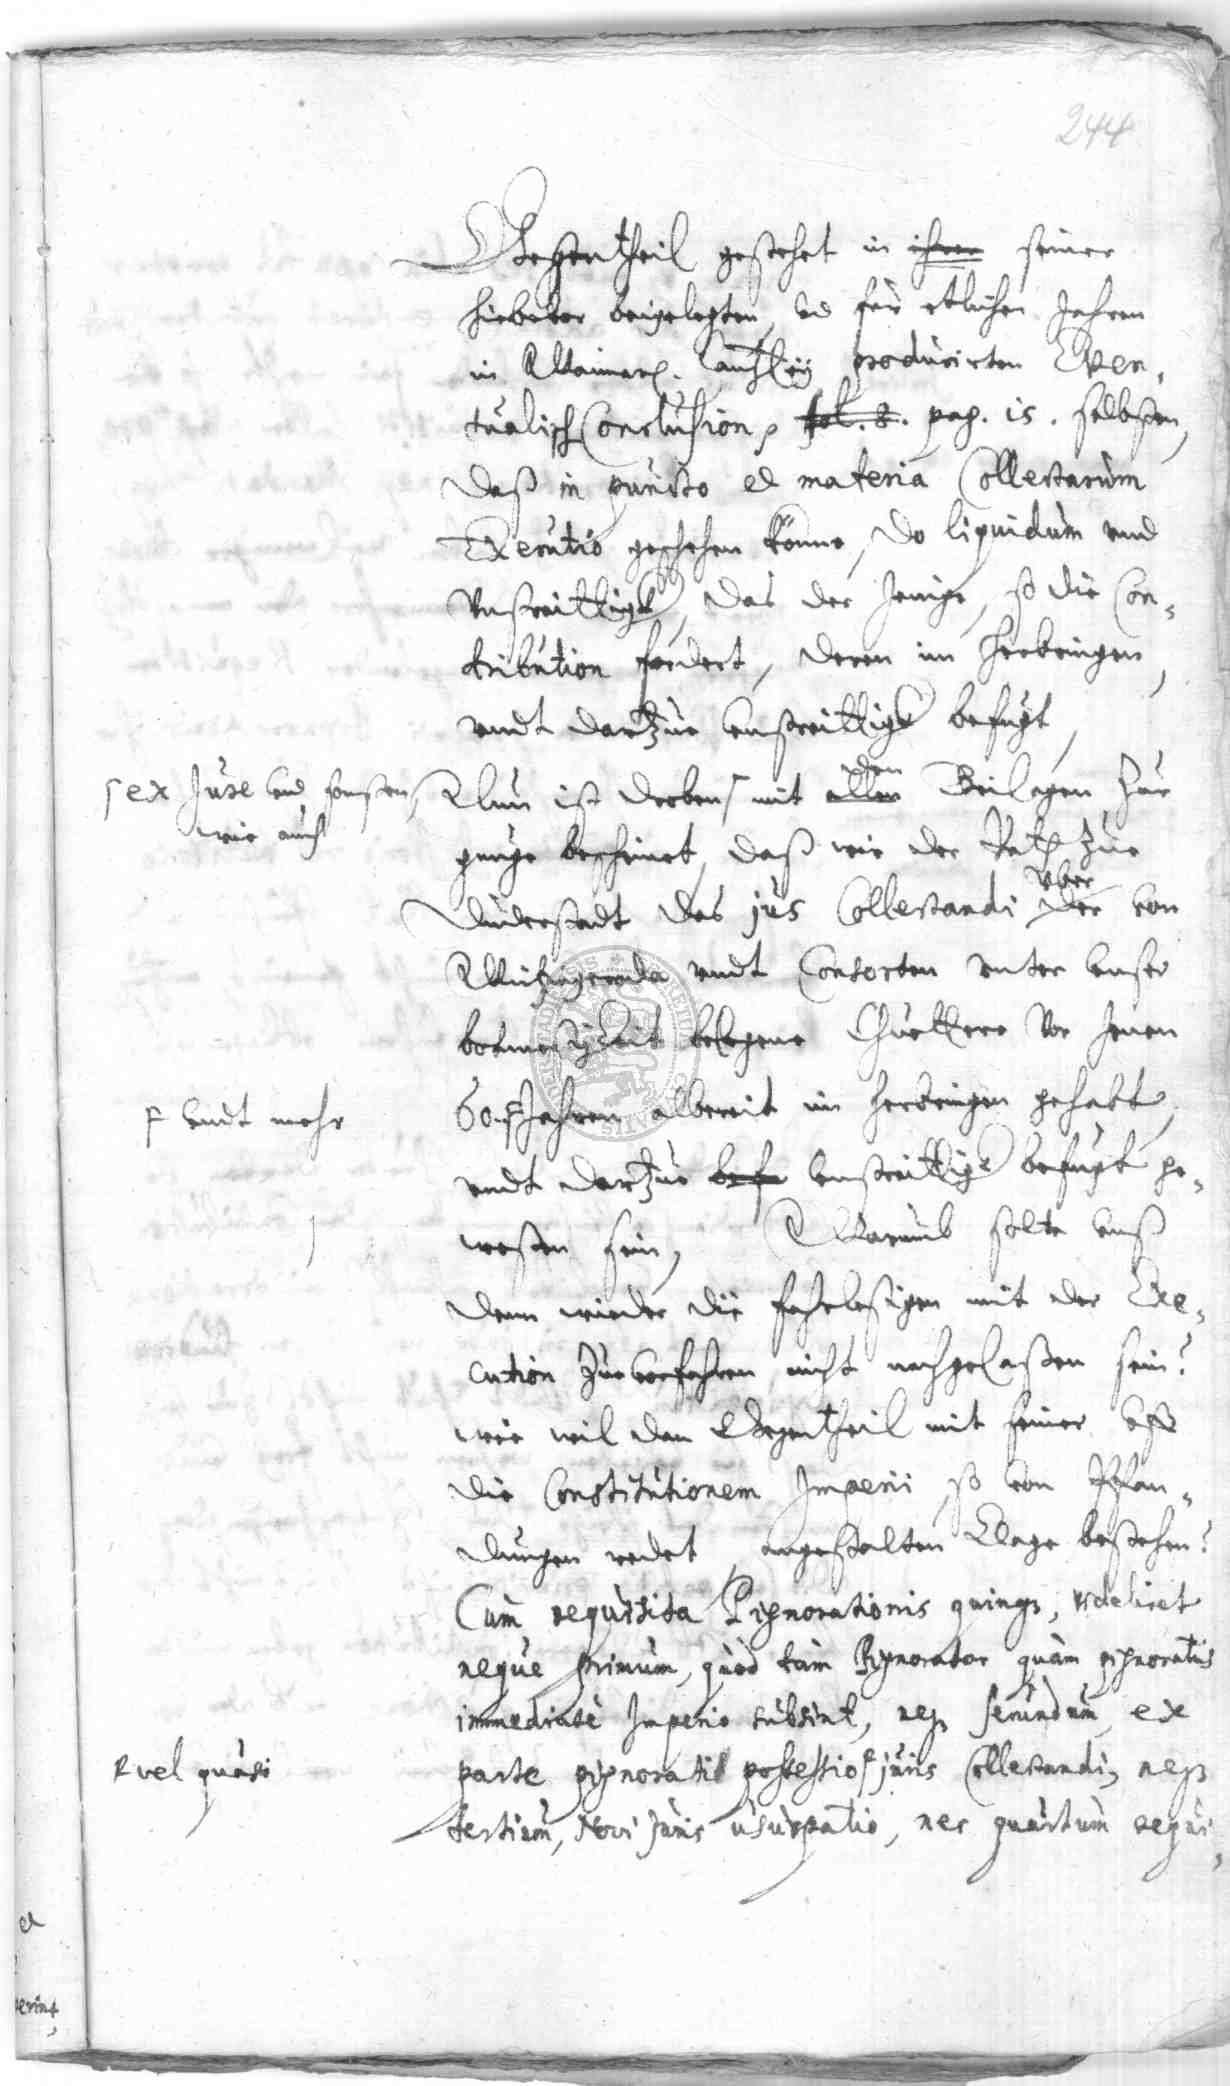 244
Gegentheil gestehet in ihrer seiner
hiebevor beigelegten, vd für etlichen Jahren
in Mainz. Cantzley producirten Even-
tualisch Conclusion, fol. 8. pag. 15. selbsten,
daß in puncto et materia Collectarum
Executio geschehen könne, do liquidum und
Vnstreittigk, das der Jenige, so die Con-
tribution fordert, deren im herbringen,
vndt dartzue vnstreittigk befugt,
ſ ex Jure vnd sonsten,
wie auch
Nun ist derbeu ſ mit allen den Beilagen zur
genuge bescheinet, daß wir der Rath zue
Duderstadt das jus Collectandi uber der von
Mintzingeroda vndt Consorten vnter vnser
botmesigkeit belegene Guettere vor jenen
F vndt mehr
60. F Jahren albereit im herbringen gehabt,
vndt dartzue befu vnstreittigk befugt ge-
wesen sein, Warumb solte vnß
dann wieder die fahrlessigen mit der Exe-
cution zue verfahren nicht nachgelaßen sein?
wie wil dan Gegentheil mit seiner vff
die Constitutionem Imperii, so von Pfan-
dungen redet, angestalten Clage bestehen?
Cum requisita Pignorationis quinque, videlicet
neque primum, quod tam Pignorator quam pignoratus
immediatè Imperio subsint, neque secundum, ex
F vel quasi
parte pignorati possessio F juris Collectandi, neque
tertium, Novi Juris usurpatio, nec quartum requi-
et
verint,